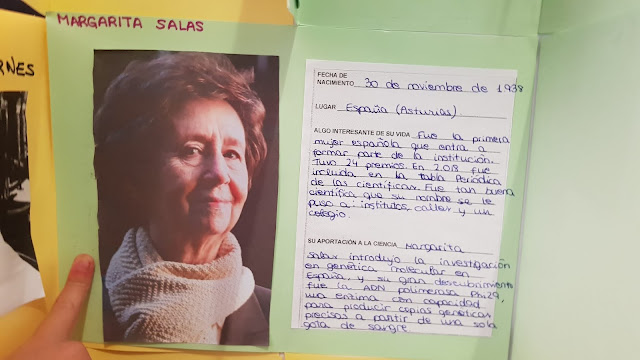 MARGARITA SALAS
RNES
FECHA DE
NACIMIENTO 30 de noviembre de 1938
LUGAR España (Asturias)
ALGO INTERESANTE DE SU VIDA Fue la primera
mujer española que entra a
formar parte de la institución.
Tuvo 24 premios. En 2.018 fue
incluida en la tabla Periódica
de las científicas. Fue tan buena
científica que su nombre se le
puso a: institutos, calles y un
colegio.
SU APORTACIÓN A LA CIENCIA Margarita
Salas introdujo la investigación
en genética molecular en
España, y su gran descubrimiento
fue la ADN polimerasa Phi29,
una enzima con capacidad
para producir copias genéticas
precisas a partir de una sola
gota de sangre.